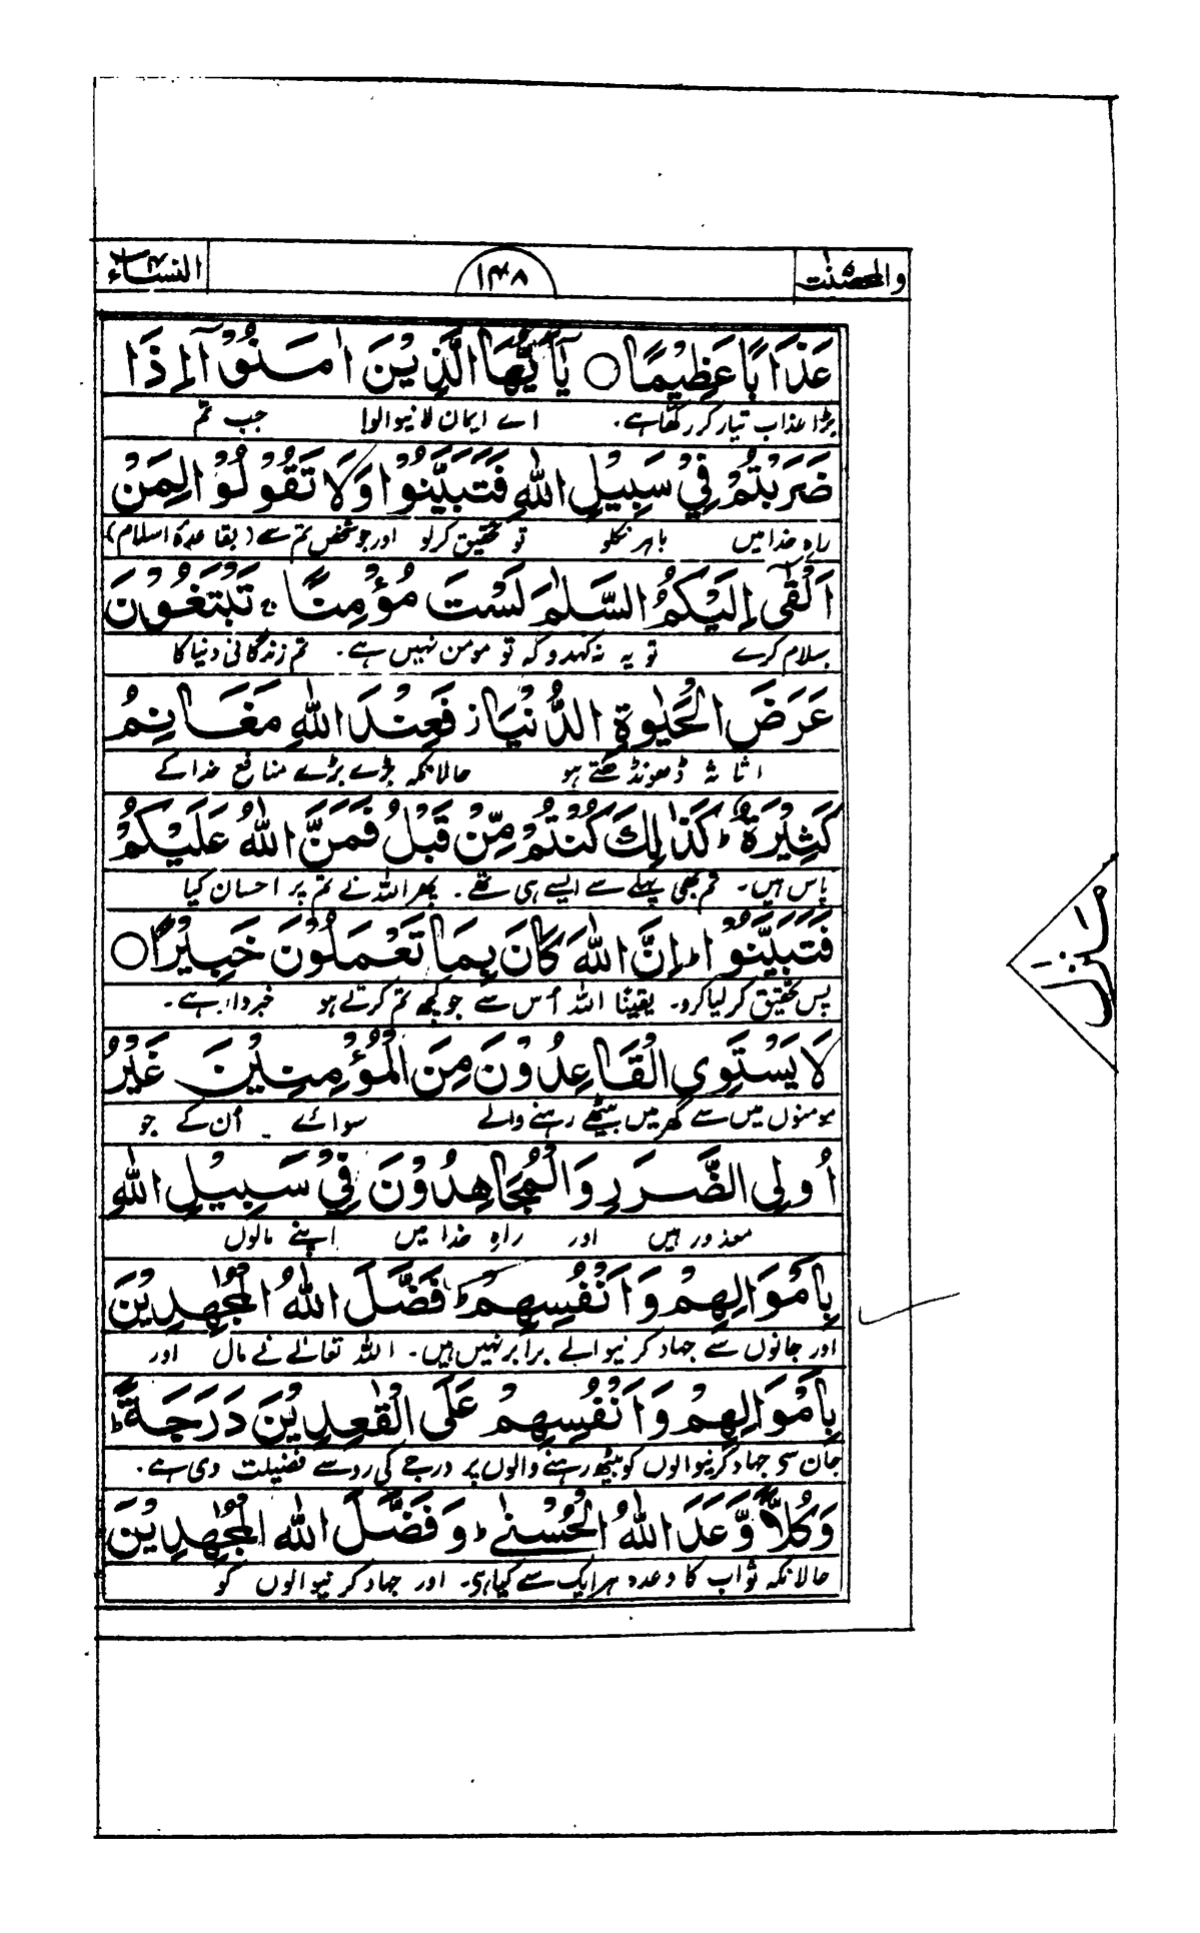 والمحصنت
۱۴۸
النساء ۴
عَذَابًا عَظِيْمًا ○ يٰۤاَيُّهَا الَّذِيْنَ اٰمَنُوْۤا اِذَا
بڑا عذاب تیار کر رکھا ہے۔ اے ایمان لانیوالو! جب تم
ضَرَبْتُمْ فِيْ سَبِيْلِ اللّٰهِ فَتَبَيَّنُوْا وَلَا تَقُوْلُوْا لِمَنْ
راہِ خدا میں باہر نکلو تو تحقیق کرلو اور جو شخص تم سے (بقاعدۂ اسلام)
اَلْقٰۤى اِلَيْكُمُ السَّلٰمَ لَسْتَ مُؤْمِنًا ۚ تَبْتَغُوْنَ
سلام کرے تو یہ نہ کہدو کہ تو مومن نہیں ہے۔ تم زندگانیٔ دنیا کا
عَرَضَ الْحَيٰوةِ الدُّنْيَا ز فَعِنْدَ اللّٰهِ مَغَانِمُ
اثاثہ ڈھونڈھتے ہو حالانکہ بڑے بڑے منافع خدا کے
كَثِيْرَةٌ ؕ كَذٰلِكَ كُنْتُمْ مِّنْ قَبْلُ فَمَنَّ اللّٰهُ عَلَيْكُمْ
پاس ہیں۔ تم بھی پہلے سے ایسے ہی تھے۔ پھر اللہ نے تم پر احسان کیا
فَتَبَيَّنُوْا ؕ اِنَّ اللّٰهَ كَانَ بِمَا تَعْمَلُوْنَ خَبِيْرًا ○
پس تحقیق کر لیا کرو۔ یقینًا اللہ اُس سے جو کچھ تم کرتے ہو خبردار ہے۔
لَا يَسْتَوِي الْقَاعِدُوْنَ مِنَ الْمُؤْمِنِيْنَ غَيْرُ
مومنوں میں سے گھر میں بیٹھے رہنے والے سوائے اُن کے جو
اُولِى الضَّرَرِ وَالْمُجَاهِدُوْنَ فِيْ سَبِيْلِ اللّٰهِ
معذور ہیں اور راہِ خدا میں اپنے مالوں
بِاَمْوَالِهِمْ وَاَنْفُسِهِمْ ؕ فَضَّلَ اللّٰهُ الْمُجٰهِدِيْنَ
اور جانوں سے جہاد کرنیوالے برابر نہیں ہیں۔ اللہ تعالےٰ نے مال اور
بِاَمْوَالِهِمْ وَاَنْفُسِهِمْ عَلَى الْقٰعِدِيْنَ دَرَجَةً ؕ
جان سے جہاد کرنیوالوں کو بیٹھ رہنے والوں پر درجے کی رو سے فضیلت دی ہے۔
وَكُلًّا وَّعَدَ اللّٰهُ الْحُسْنٰى ؕ وَفَضَّلَ اللّٰهُ الْمُجٰهِدِيْنَ
حالانکہ ثواب کا وعدہ ہر ایک سے کیا ہے۔ اور جہاد کرنیوالوں کو
منزل ۱